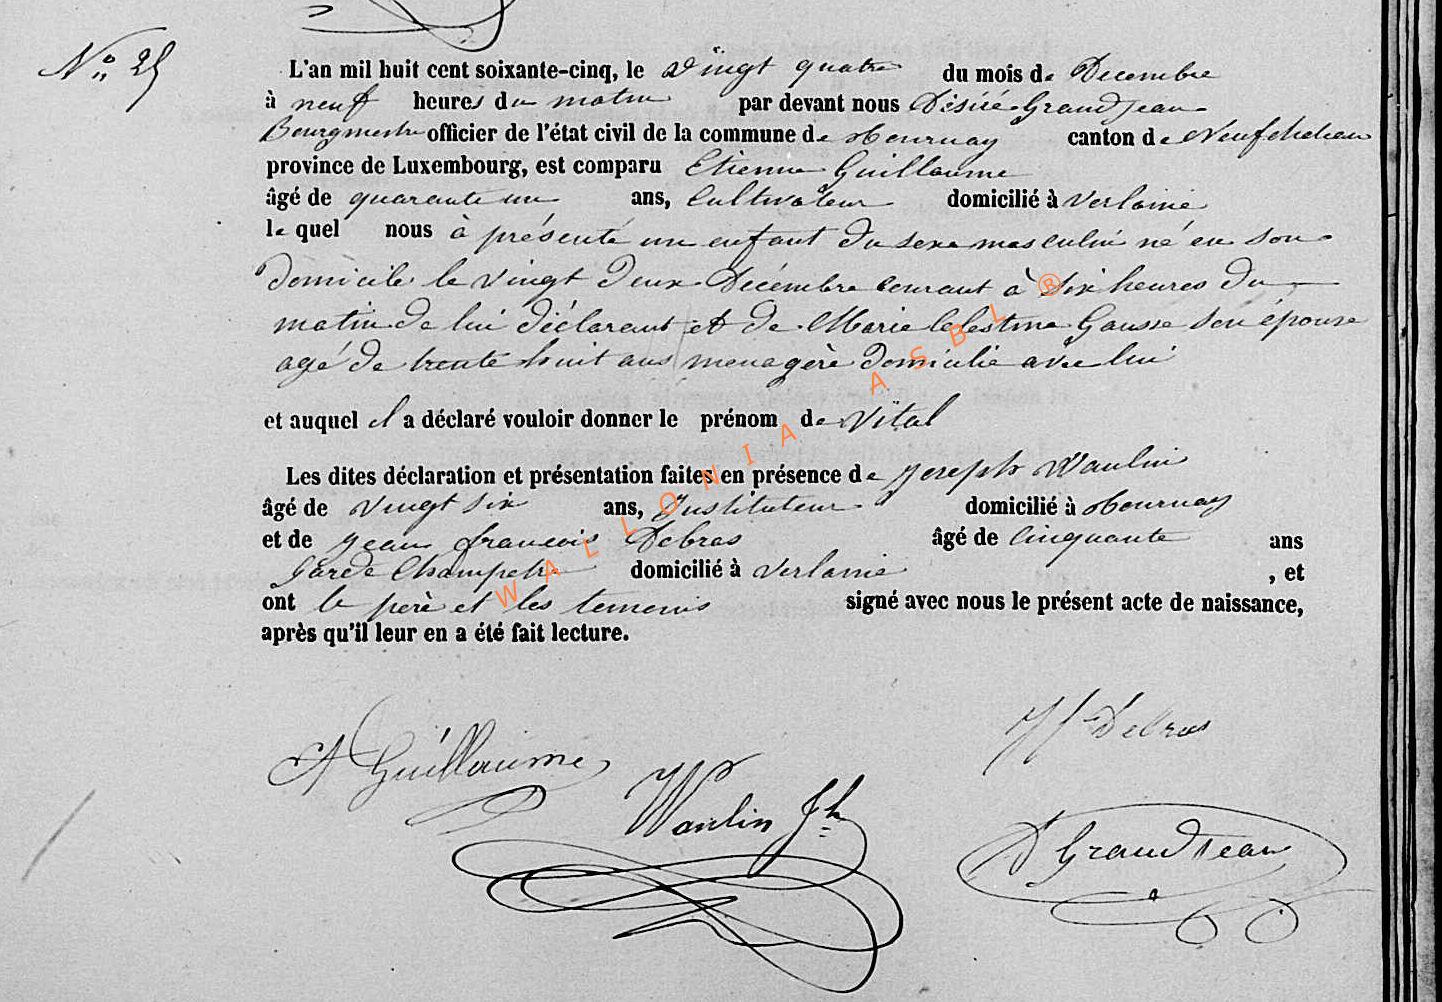 No 25
L'an mil huit cent soixante-cinq, le vingt quatre du mois de Decembre
à neuf heures du matin par devant nous Désiré Grandjean
Bourgmestre officier de l'état civil de la commune de Tournay canton de Neufchateau
province de Luxembourg, est comparu Etienne Guillaume
âgé de quarante un ans, Cultivateur domicilié à Verlaine
le quel nous à présenté un enfant du sexe masculin né en son
domicile le vingt deux Décembre courant à dix heures du
matin de lui déclarant et de Marie Celestine Gausse son épouse
agé de trente huit ans menagère domicilié avec lui
et auquel il a déclaré vouloir donner le prénom de Vital
Les dites déclaration et présentation faites en présence de Joseph Waulin
âgé de vingt six ans, Instituteur domicilié à Tournay
et de Jean françois Debras âgé de Cinquante ans
Garde Champetre domicilié à Verlaine , et
ont le père et les temoins signé avec nous le présent acte de naissance,
après qu'il leur en a été fait lecture.
Guillaume
Debras
Waulin Jh
D Grandjean
WALLONIA ASBL ®